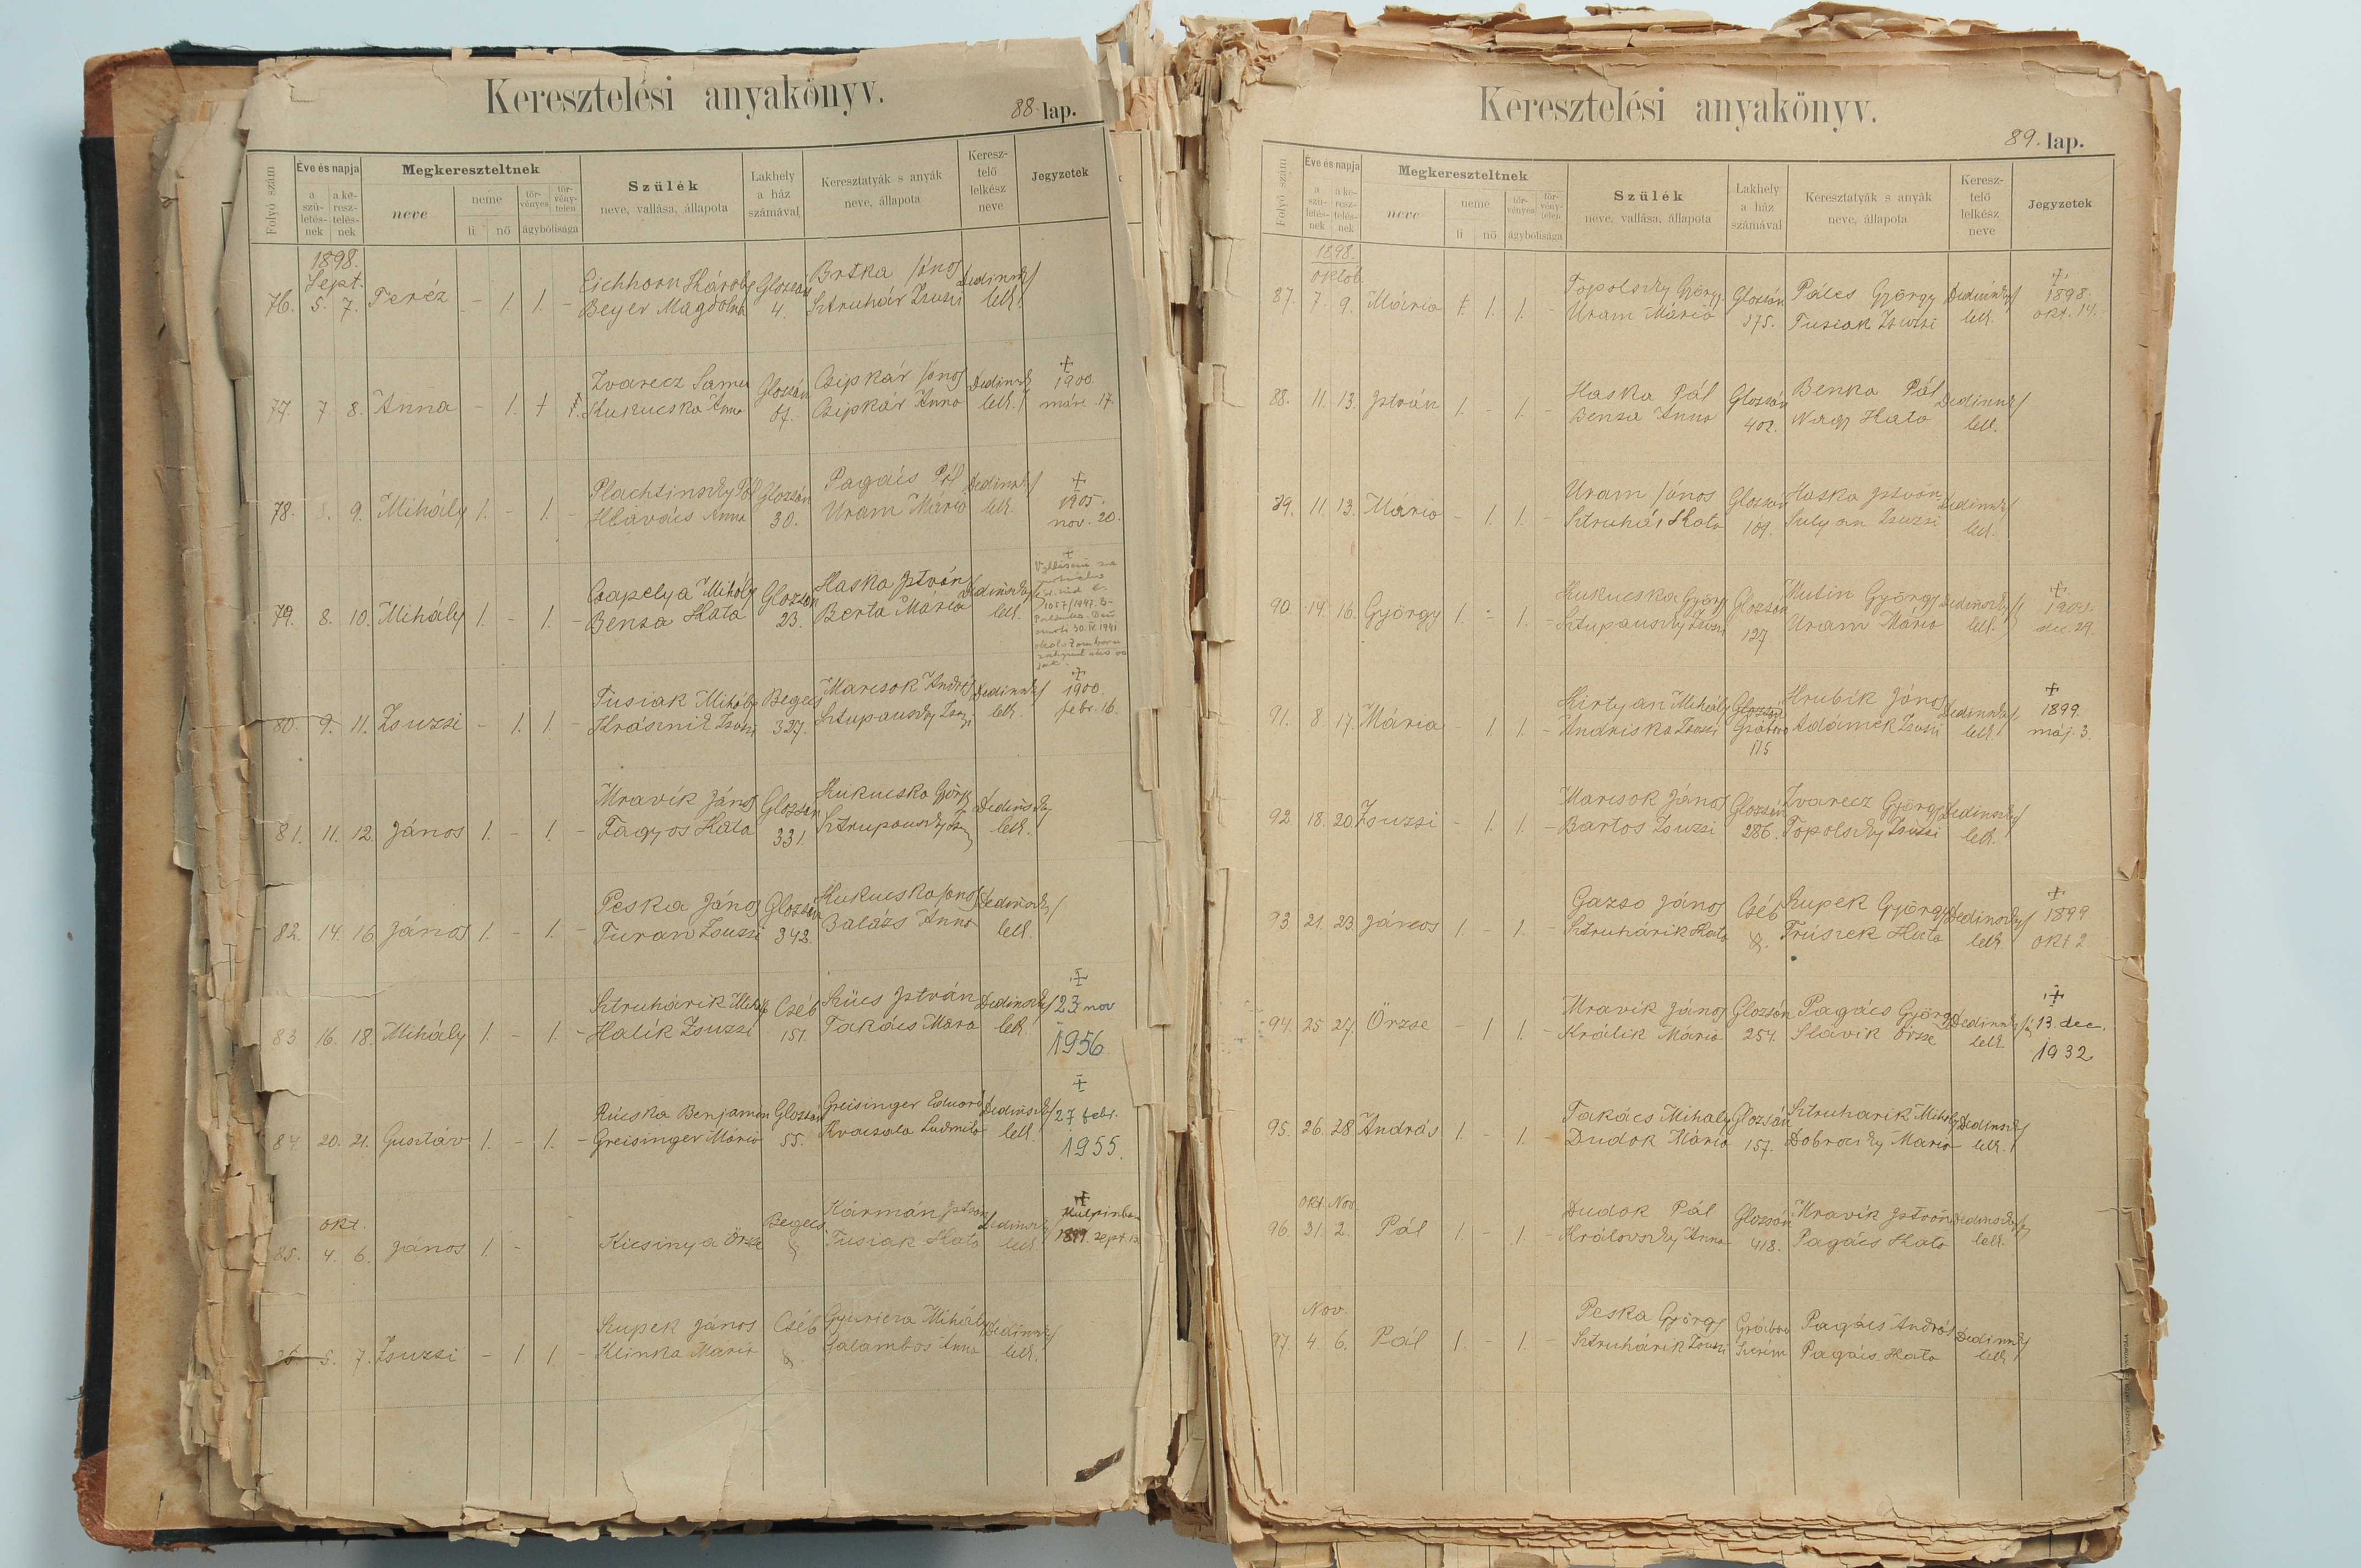 Keresztelési anyakönyv.
88 lap.
Folyó szám
Éve és napja
a szü- letés- nek
a ke- resz- telés- nek
Megkereszteltnek
neve
neme
fi
nő
tör- vényes
tör- vény- telen
ágybólisága
Szülék
neve, vallása, állapota
Lakhely a ház számával
Keresztatyák s anyák neve, állapota
Keresz- telő lelkész neve
Jegyzetek
1898.
Sept.
76. 5. 7. Teréz - 1. 1. - Eichhorn Károly Glozsán Brtka János Dedinszky
Beyer Magdolna 4. Sztruhár Zsuzsi lelk.
77. 7. 8. Anna - 1. Zvarecz Samu Glozsán Csipkár János Dedinszky † 1900.
Kukucska Anna Csipkár Anna lelk. márc. 17.
78. 8. 9. Mihály 1. - 1. - Plachtinszky Pál Glozsán Pagács Pál Dedinszky † 1905.
Hlavács Anna 30. Uram Mária lelk. nov. 20.
79. 8. 10. Mihály 1. - 1. - Csapelya Mihály Glozsán Haska István Dedinszky †
Bensa Kata 23. Berta Mária lelk.
80. 9. 11. Zsuzsi - 1. 1. - Tusiak Mihály Begecs Marcsok András Dedinszky † 1900.
Krasznik Zsuzsi 327. Sztupavszky Zsuzsi lelk. febr. 16.
81. 11. 12. János 1. - 1. - Mravík János Glozsán Kukucska György Dedinszky
Fagyos Kata 331. lelk.
82. 14. 16. János 1. - 1. - Peska János Glozsán Kukucska János Dedinszky
Turan Zsuzsi 342. Balázs Anna lelk.
83. 16. 18. Mihály 1. - 1. - Sztruhárik Mihály Cséb Szücs István Dedinszky † 23 nov
Halík Zsuzsi 151. Takács Mára lelk 1956
84. 20. 21. Gusztáv 1. - 1. - Rúcska Benjamin Glozsán Greisinger Eduard Dedinszky † 27 febr.
Greisinger Mária 55. Kvacsala Ludmila lelk. 1955.
okt.
85. 4. 6. János 1. - Kicsinya Örzse Begecs Kármán István Dedinszky † Kulpinban
Tusiak Kata lelk. 1899. szept. 13
86. 5. 7. Zsuzsi - 1 1 - Supek János Cséb Gyuricza Mihály Dedinszky
Klinka Mária Galambos Anna lelk.
Keresztelési anyakönyv.
89. lap.
Folyó szám
Éve és napja
a szü- letés- nek
a ke- resz- telés- nek
Megkereszteltnek
neve
neme
fi
nő
tör- vényes
tör- vény- telen
ágybólisága
Szülék
neve, vallása, állapota
Lakhely a ház számával
Keresztatyák s anyák neve, állapota
Keresz- telő lelkész neve
Jegyzetek
1898.
Októb.
87. 7. 9. Mária 1. 1. - Topolszky György Glozsán Pálcs György Dedinszky † 1898.
Uram Mária 375. Tusiak Zsuzsi lelk. okt. 14.
88. 11. 13. István 1. - 1. - Haska Pál Glozsán Benka Pál Dedinszky
Bensa Anna 402. Nagy Kata lelk.
89. 11. 13. Mária - 1. 1. - Uram János Glozsán Haska István Dedinszky
Sztruhár Kata 109. Sulyan Zsuzsi lelk.
90. 14. 16. György 1. - 1. - Kukucska György Glozsán Mutin György Dedinszky †
Sztupavszky Zsuzsi 127. Uram Mária lelk. dec. 29.
91. 8. 17. Mária - 1. 1. - Kirtyan Mihály Glozsán Hrubík János Dedinszky † 1899.
Andriska Zsuzsi Grabovo Adámek Zsuzsi lelk. máj. 3.
115
92. 18. 20. Zsuzsi - 1. 1. - Marcsok János Glozsán Zvarecz György Dedinszky
Bartos Zsuzsi 286. Topolszky Zsuzsi lelk.
93. 21. 23. János 1. - 1. - Gazso János Cséb Supek György Dedinszky † 1899
Sztruhárik Kata Trúszek Kata lelk. okt 2
94. 25. 27. Örzse - 1 1 - Mravík János Glozsán Pagács György Dedinszky † 13. dec.
Králik Mária 254. Slávik Örzse lelk 1932.
95. 26. 28. András 1. - 1. - Takács Mihály Glozsán Sztruharik Mihály Dedinszky
Dudok Mária 157. Dobrovszky Maria lelk.
okt. Nov.
96. 31. 2. Pál 1. - 1. - Dudok Pál Glozsán Mravík István Dedinszky
Královszky Anna 418. Pagács Kata lelk.
Nov.
97. 4. 6. Pál 1. - 1. - Peska György Grabovo Pagács András Dedinszky
Sztruhárik Zsuzsi Szerém Pagács Kata lelk.